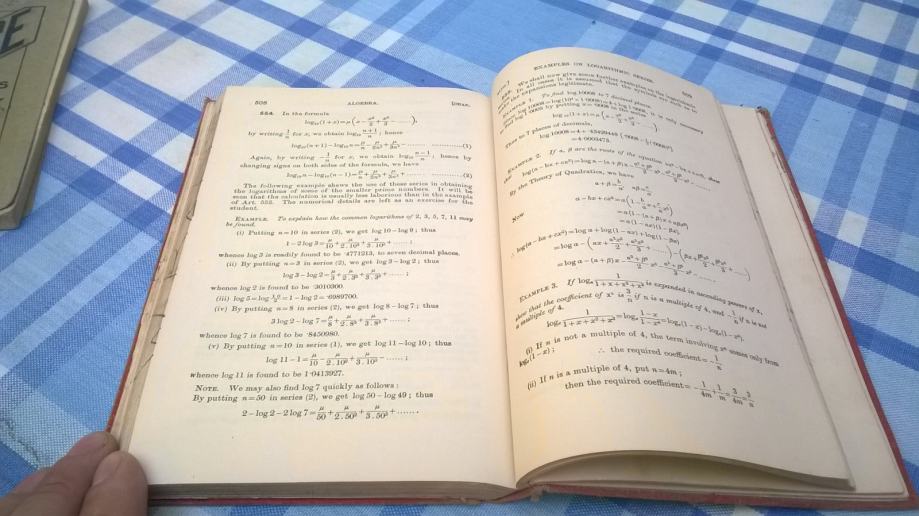 CE
508
ALGEBRA.
[CHAP.
554. In the formula
log₁₀(1+x)=μ(x-x²/2+x³/3-......),
by writing 1/n for x, we obtain log₁₀ (n+1)/n; hence
log₁₀(n+1)-log₁₀n=μ/n-μ/2n²+μ/3n³-......(1)
Again, by writing -1/n for x, we obtain log₁₀ (n-1)/n; hence by
changing signs on both sides of the formula, we have
log₁₀n-log₁₀(n-1)=μ/n+μ/2n²+μ/3n³+......(2)
The following example shews the use of these series in obtaining
the logarithms of some of the smaller prime numbers. It will be
seen that the calculation is usually less laborious than in the example
of Art. 552. The numerical details are left as an exercise for the
student.
EXAMPLE. To explain how the common logarithms of 2, 3, 5, 7, 11 may
be found.
(i) Putting n=10 in series (2), we get log 10-log 9; thus
1-2 log 3=μ/10+μ/2.10²+μ/3.10³+......;
whence log 3 is readily found to be ·4771213, to seven decimal places.
(ii) By putting n=3 in series (2), we get log 3-log 2; thus
log 3-log 2=μ/3+μ/2.3²+μ/3.3³+......;
whence log 2 is found to be ·3010300.
(iii) log 5=log 10/2=1-log 2=·6989700.
(iv) By putting n=8 in series (2), we get log 8-log 7; thus
3 log 2-log 7=μ/8+μ/2.8²+μ/3.8³+......;
whence log 7 is found to be ·8450980.
(v) By putting n=10 in series (1), we get log 11-log 10; thus
log 11-1=μ/10-μ/2.10²+μ/3.10³-......;
whence log 11 is found to be 1·0413927.
NOTE. We may also find log 7 quickly as follows:
By putting n=50 in series (2), we get log 50-log 49; thus
2-log 2-2 log 7=μ/50+μ/2.50²+μ/3.50³+......
EXAMPLES ON LOGARITHMIC SERIES.
509
We shall now give some further examples on the logarithmic
In all cases it is assumed that the
the expansions legitimate.
EXAMPLE 1. To find log 10008 to 7 decimal places.
log 10008=log(10⁴×1·0008)=4+log 1·0008, it is only necessary
to find log 1·0008 by putting x=·0008 in the series
log₁₀(1+x)=μ(x-x²/2+x³/3-......).
Thus to 7 places of decimals,
log 10008=4+·43429448
=4·0003473.
EXAMPLE 2. If α, β are the roots of the equation
log(a-bx+cx²)=log a-(α+β)x
By the Theory of Quadratics, we have
α+β=b/a, αβ=c/a.
Now
a-bx+cx²=a(1-b/a x+c/a x²)
=a{1-(α+β)x+αβx²}
=a(1-αx)(1-βx)
∴ log(a-bx+cx²)=log a+log(1-αx)+log(1-βx)
=log a-(αx+α²x²/2+α³x³/3+......)-(βx+β²x²/2+......)
=log a-(α+β)x-
EXAMPLE 3. If logₑ 1/(1+x+x²+x³) is expanded in ascending powers of x,
shew that the coefficient of xⁿ is 3/n if n is a multiple of 4, and -1/n if n is not
a multiple of 4.
logₑ 1/(1+x+x²+x³)=logₑ (1-x)/(1-x⁴)=logₑ(1-x)-logₑ(1-x⁴).
(i) If n is not a multiple of 4, the term involving xⁿ comes only from
logₑ(1-x); ∴ the required coefficient=-1/n
(ii) If n is a multiple of 4, put n=4m;
then the required coefficient=-1/4m+1/m=3/4m=3/n